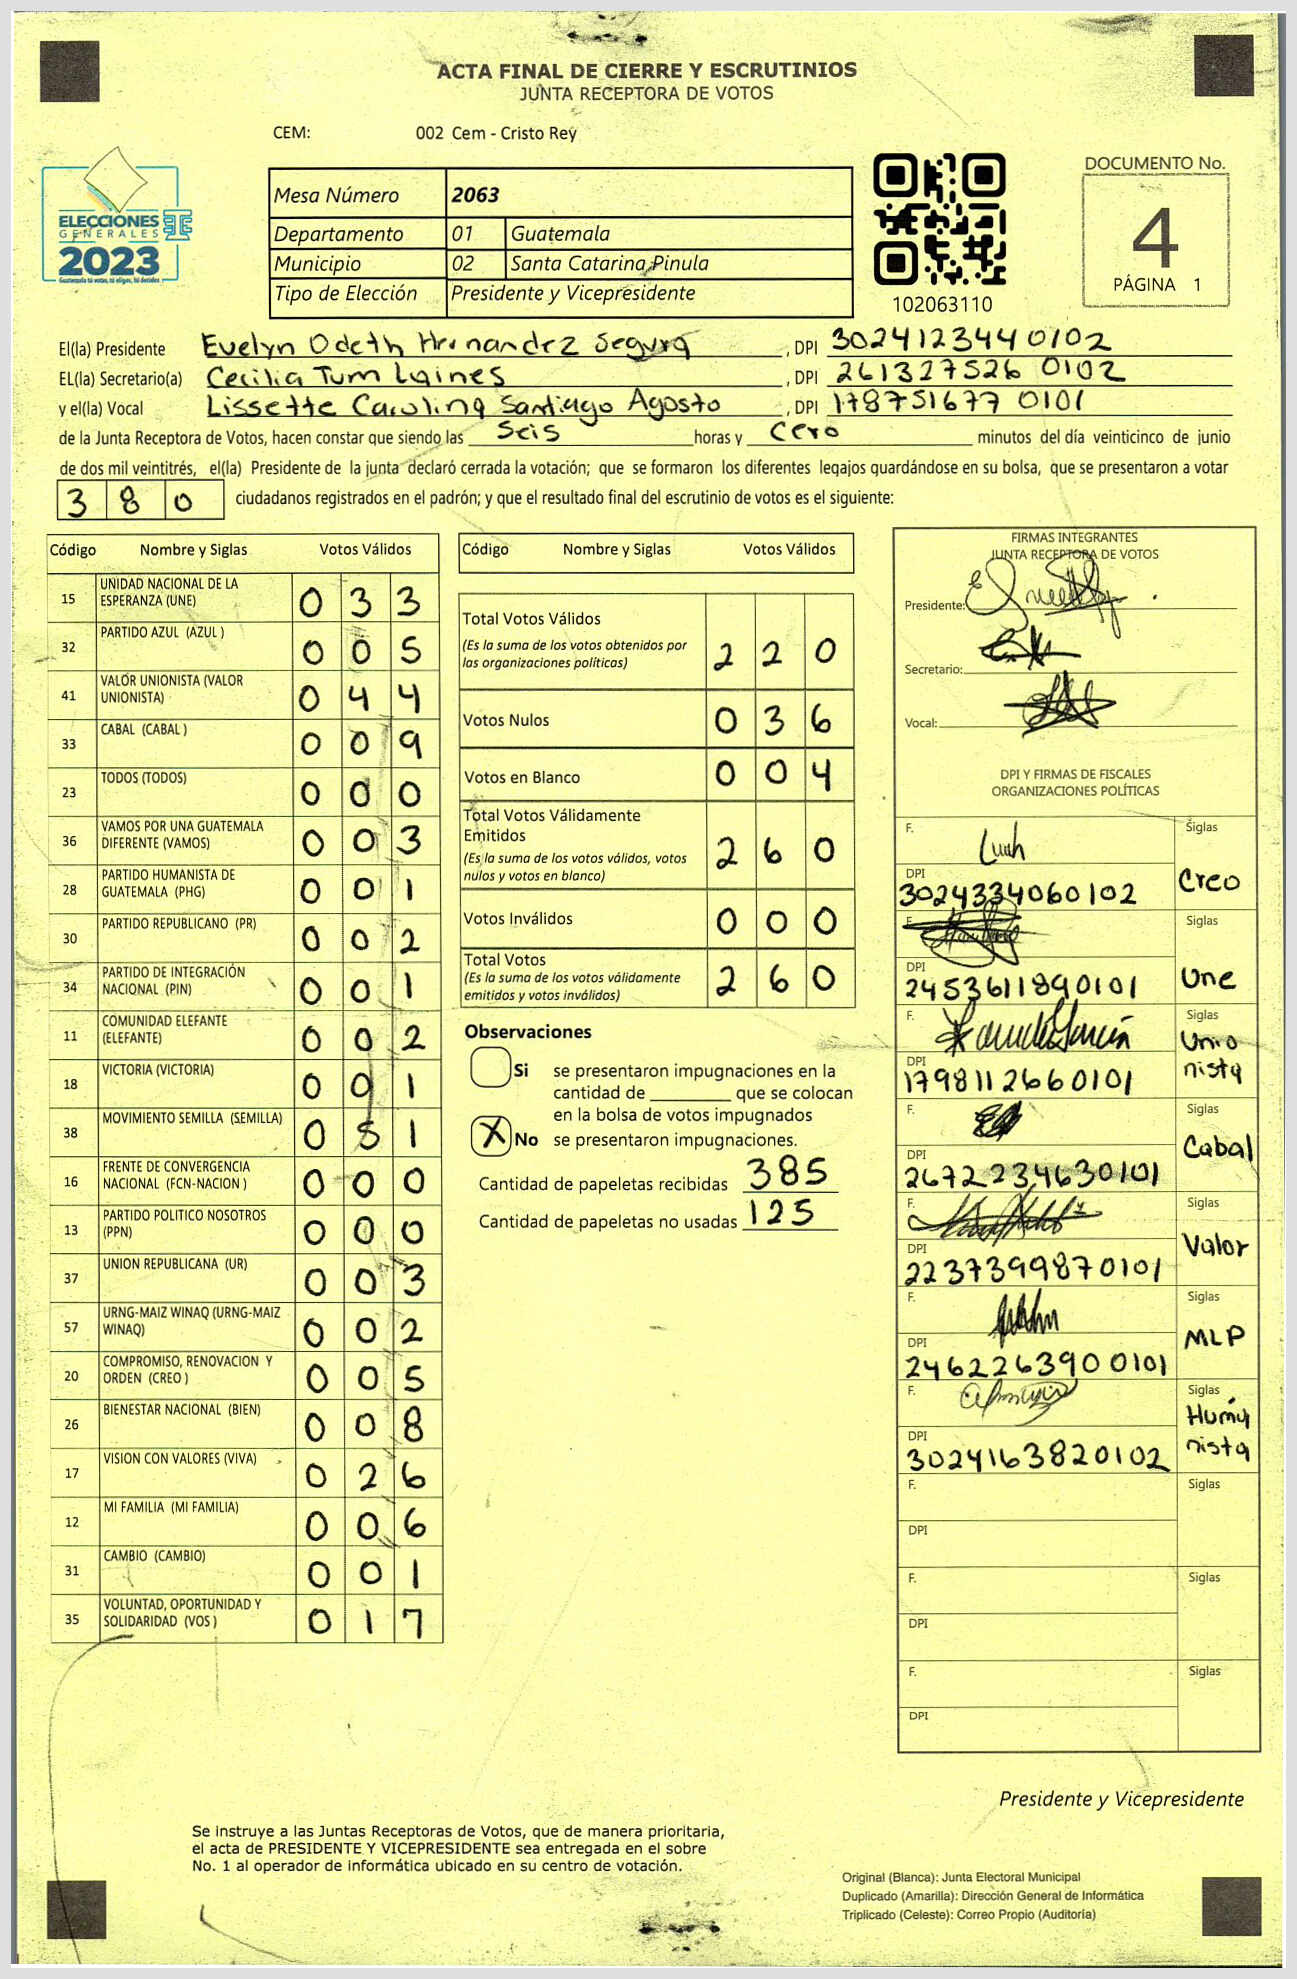 ACTA FINAL DE CIERRE Y ESCRUTINIOS
JUNTA RECEPTORA DE VOTOS
CEM: 002 Cem - Cristo Rey
ELECCIONES
GENERALES
2023
Mesa Número 2063
Departamento 01 Guatemala
Municipio 02 Santa Catarina Pinula
Tipo de Elección Presidente y Vicepresidente
102063110
DOCUMENTO No.
4
PÁGINA 1
El(la) Presidente Evelyn Odeth Hernandez Segura, DPI 3024123440102
EL(la) Secretario(a) Cecilia Tum Laines, DPI 261327526 0102
y el(la) Vocal Lissette Carolina Santiago Agosto, DPI 178751677 0101
de la Junta Receptora de Votos, hacen constar que siendo las Seis horas y Cero minutos del día veinticinco de junio
de dos mil veintitrés, el(la) Presidente de la junta declaró cerrada la votación; que se formaron los diferentes legajos guardándose en su bolsa, que se presentaron a votar
380 ciudadanos registrados en el padrón; y que el resultado final del escrutinio de votos es el siguiente:
Código Nombre y Siglas Votos Válidos
15 UNIDAD NACIONAL DE LA ESPERANZA (UNE) 0 3 3
32 PARTIDO AZUL (AZUL ) 0 0 5
41 VALOR UNIONISTA (VALOR UNIONISTA) 0 4 4
33 CABAL (CABAL ) 0 0 9
23 TODOS (TODOS) 0 0 0
36 VAMOS POR UNA GUATEMALA DIFERENTE (VAMOS) 0 0 3
28 PARTIDO HUMANISTA DE GUATEMALA (PHG) 0 0 1
30 PARTIDO REPUBLICANO (PR) 0 0 2
34 PARTIDO DE INTEGRACIÓN NACIONAL (PIN) 0 0 1
11 COMUNIDAD ELEFANTE (ELEFANTE) 0 0 2
18 VICTORIA (VICTORIA) 0 0 1
38 MOVIMIENTO SEMILLA (SEMILLA) 0 5 1
16 FRENTE DE CONVERGENCIA NACIONAL (FCN-NACION ) 0 0 0
13 PARTIDO POLITICO NOSOTROS (PPN) 0 0 0
37 UNION REPUBLICANA (UR) 0 0 3
57 URNG-MAIZ WINAQ (URNG-MAIZ WINAQ) 0 0 2
20 COMPROMISO, RENOVACION Y ORDEN (CREO ) 0 0 5
26 BIENESTAR NACIONAL (BIEN) 0 0 8
17 VISION CON VALORES (VIVA) 0 2 6
12 MI FAMILIA (MI FAMILIA) 0 0 6
31 CAMBIO (CAMBIO) 0 0 1
35 VOLUNTAD, OPORTUNIDAD Y SOLIDARIDAD (VOS ) 0 1 7
Código Nombre y Siglas Votos Válidos
Total Votos Válidos
(Es la suma de los votos obtenidos por las organizaciones políticas) 2 2 0
Votos Nulos 0 3 6
Votos en Blanco 0 0 4
Total Votos Válidamente Emitidos
(Es la suma de los votos válidos, votos nulos y votos en blanco) 2 6 0
Votos Inválidos 0 0 0
Total Votos
(Es la suma de los votos válidamente emitidos y votos inválidos) 2 6 0
Observaciones
Si se presentaron impugnaciones en la
cantidad de ________ que se colocan
en la bolsa de votos impugnados
X No se presentaron impugnaciones.
Cantidad de papeletas recibidas 385
Cantidad de papeletas no usadas 125
FIRMAS INTEGRANTES
JUNTA RECEPTORA DE VOTOS
Presidente:
Secretario:
Vocal:
DPI Y FIRMAS DE FISCALES
ORGANIZACIONES POLÍTICAS
F. Siglas
DPI 3024334060102 Creo
F. Siglas
DPI 2453611890101 Une
F. Siglas
DPI 1798112660101 Unionista
F. Siglas
DPI 2672234630101 Cabal
F. Siglas
DPI 2237399870101 Valor
F. Siglas
DPI 2462263900101 MLP
F. Siglas
DPI 3024163820102 Humanista
F. Siglas
DPI
F. Siglas
DPI
F. Siglas
DPI
Presidente y Vicepresidente
Se instruye a las Juntas Receptoras de Votos, que de manera prioritaria,
el acta de PRESIDENTE Y VICEPRESIDENTE sea entregada en el sobre
No. 1 al operador de informática ubicado en su centro de votación.
Original (Blanca): Junta Electoral Municipal
Duplicado (Amarilla): Dirección General de Informática
Triplicado (Celeste): Correo Propio (Auditoría)